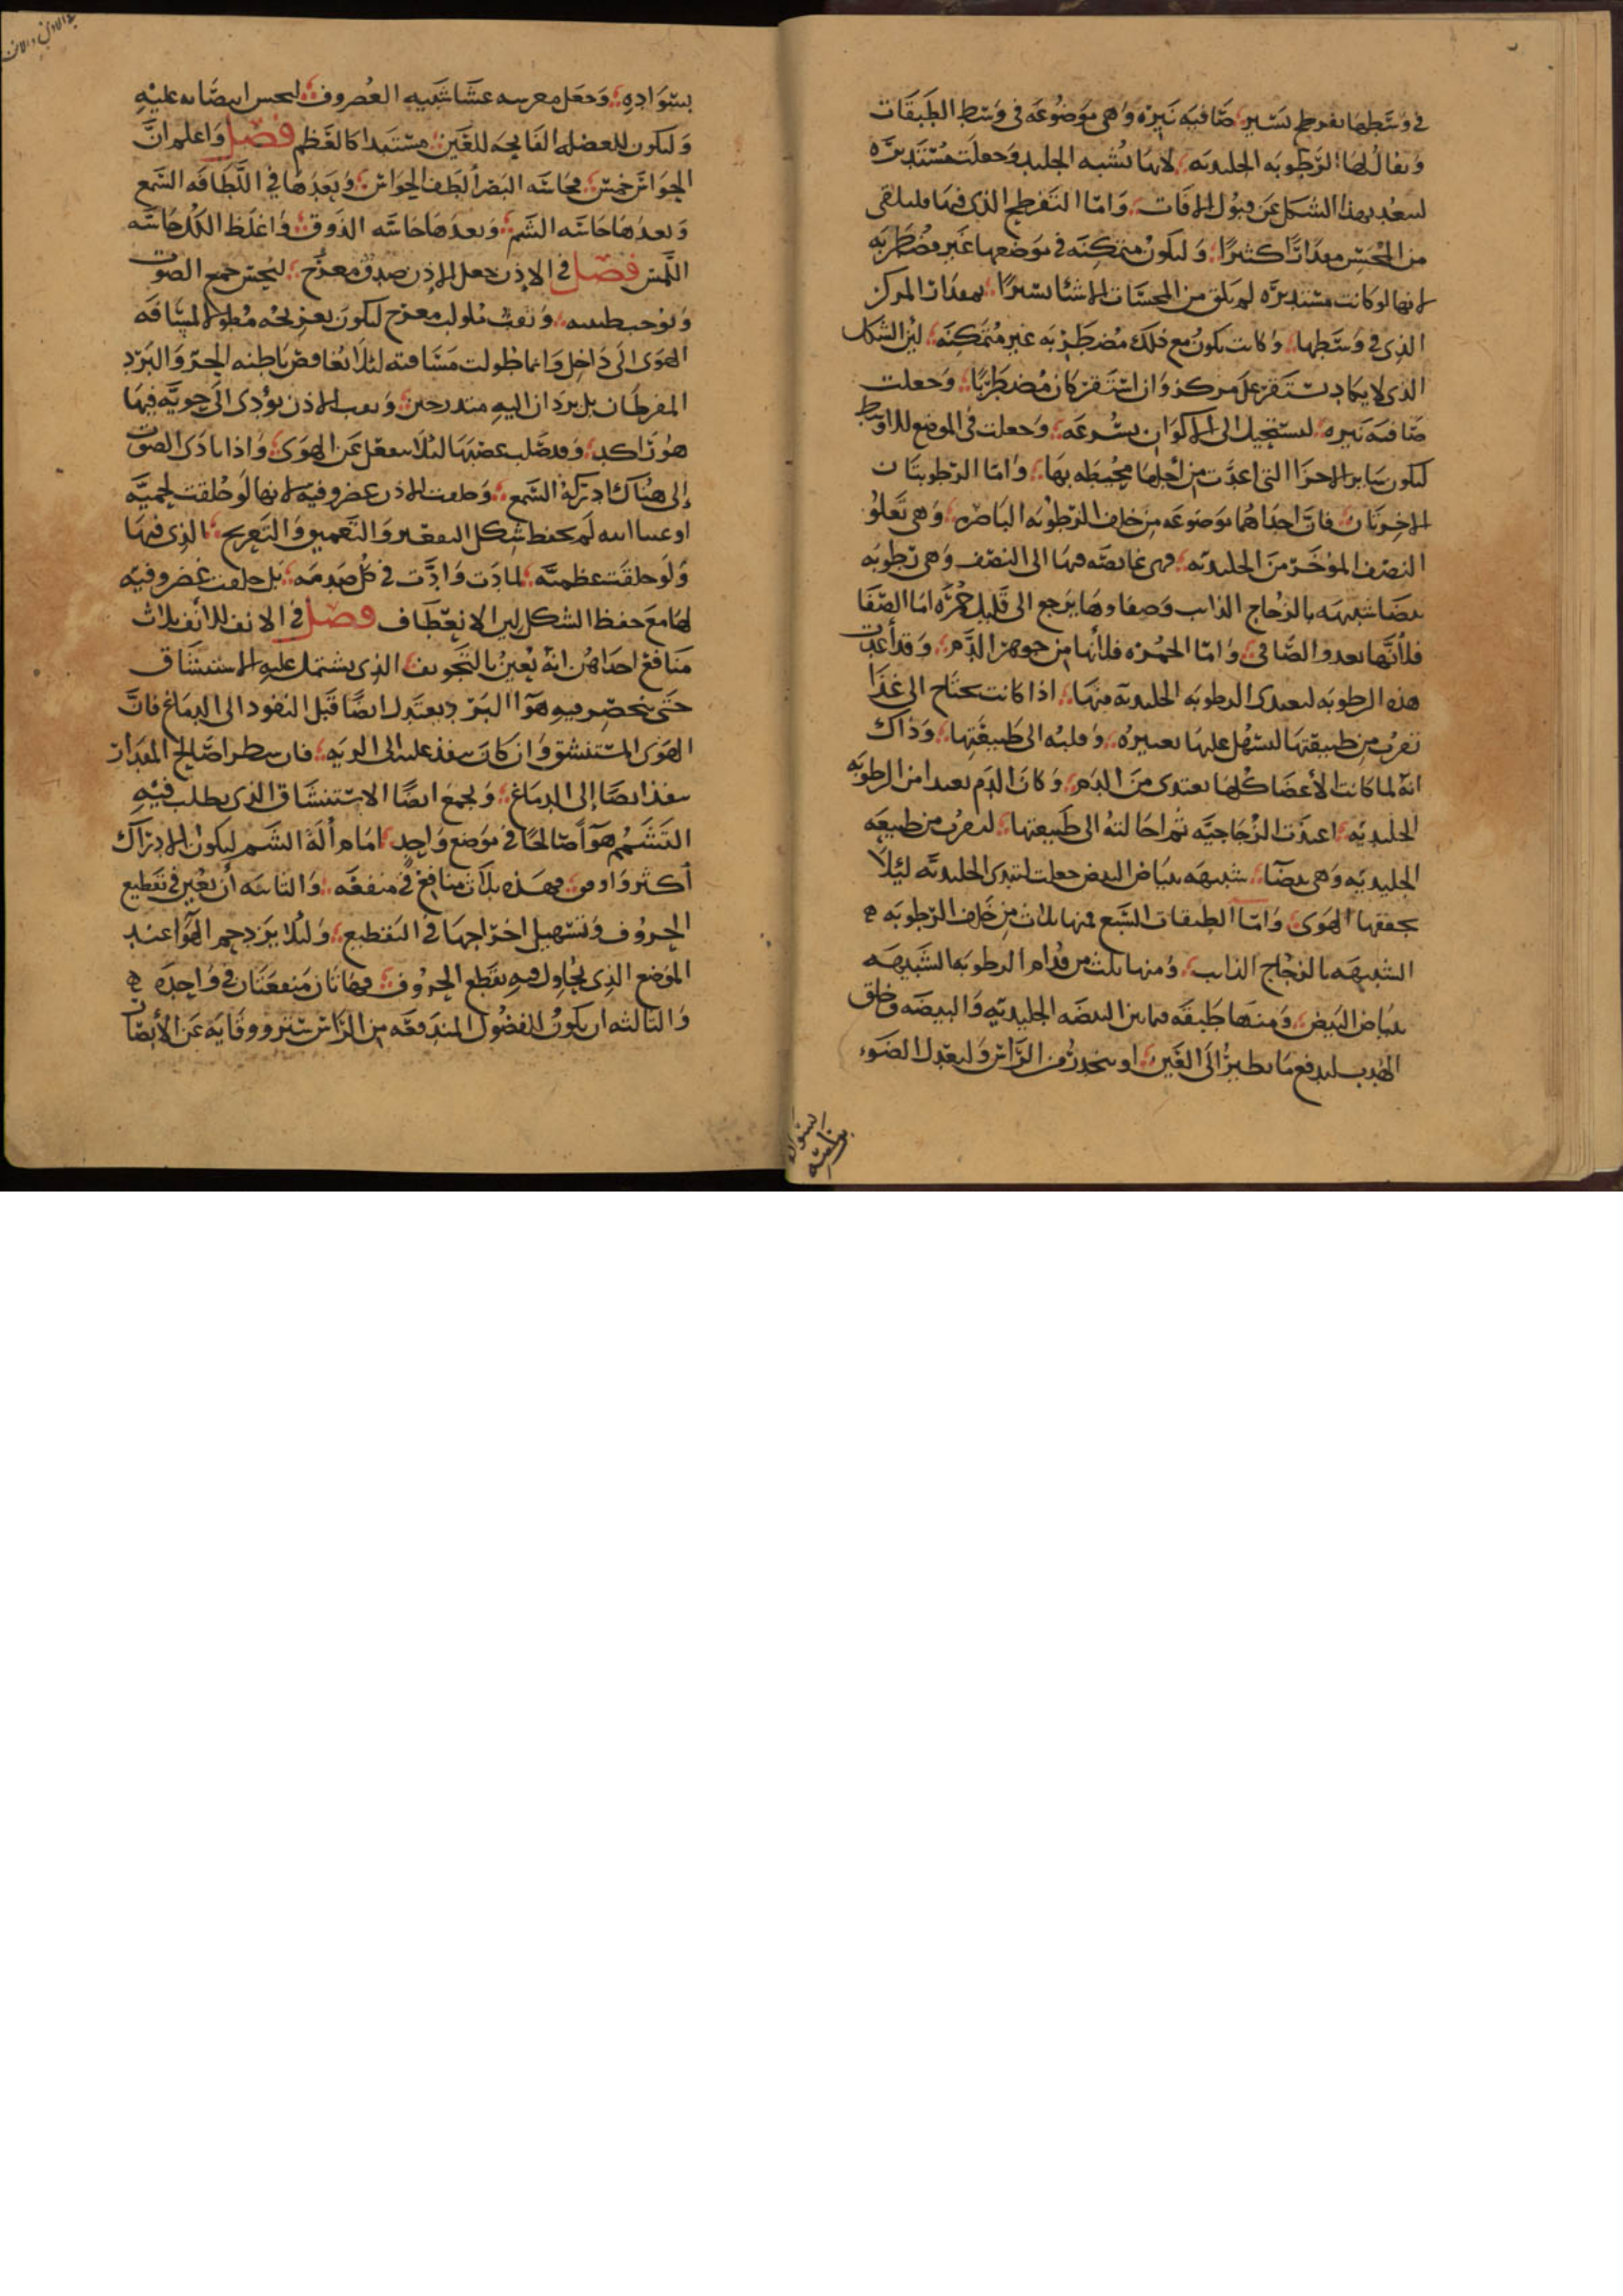 في وسطها تفرطح يسير صافيه نيره وهي موضوعه في وسط الطبقات
ويقال لها الرطوبه الجليديه لانها تشبه الجليد وجعلت مستديره
لتبعد بهذا الشكل عن قبول الافات واما التفرطح الذي فيها فلتلقى
من المحس مقدارا كثيرا وليكون متمكنه في موضعها غير مضطربه
لانها لو كانت مستديره لم تلق من المحسات الا شيئا يسيرا بمقدار المركز
الذي في وسطها وكانت تكون مع ذلك مضطربه غير متمكنه لين الشكل
الذي لا يكاد يستقر على مركز وان استقر كان مضطربا وجعلت
صافيه نيره لتستحيل الى الالوان بسرعه وجعلت في الموضع الاوسط
ليكون ساير الاجزا التي اعدت من اجلها محيطه بها واما الرطوبتان
الاخرتان فان احداهما موضوعه من خلف الرطوبه الباصره وهي تعلو
النصف المؤخر من الجليديه فهي غايصه فيها الى النصف وهي رطوبه
بيضا شبيهه بالزجاج الذايب وصفاوها يرجع الى قليل حمره اما الصفا
فلانها تغدو الصافي واما الحمره فلانها من جوهر الدم وقد أعدت
هذه الرطوبه لتغتدي الرطوبه الجليديه منها اذا كانت تحتاج الى غذا
تقرب من طبيعتها ليسهل عليها تغييره وقلبه الى طبيعتها وذاك
انه لما كانت الأعضا كلها تغتدي من الدم وكان الدم بعيدا من الرطوبه
الجليديه اعدت الزجاجيه ثم احالته الى طبيعتها ليقرب من طبيعه
الجليديه وهي بيضا شبيهه ببياض البيض جعلت لتندي الجليديه ليلا
يجففها الهوى واما الطبقات السبع فمنها ثلاث من خلف الرطوبه
الشبيهه بالزجاج الذايب ومنها ثلث من قدام الرطوبه الشبيهه
ببياض البيض ومنها طبقه فيما بين البيضه الجليديه والبيضه وخلق
الهدب ليدفع ما يطير الى العين او ينحدر من الراس وليعدل الضوء
بسواده وجعل مغرسه غشا شبيه الغضروف ليحسن انتصابه عليه
وليكون للعضله الفاتحه للعين مستندا كالعظم فصل واعلم ان
الحواس خمس فحاسه البصر ألطف الحواس وبعدها في اللطافه السمع
وبعدها حاسه الشم وبعدها حاسه الذوق واغلظ الكل حاسه
اللمس فصل في الاذن جعل للاذن صدف معوج ليحسن جمع الصوت
ويوجب طنينه وثقب ملولب معوج ليكون تعويجه مطولا لمسافه
الهوى الى داخل وانما طولت مسافته لئلا يغافص باطنه الحر والبرد
المفرطان بل يردان اليه متدرجين وثقب الاذن يؤدي الى جوبه فيها
هو راكد وقد صلب عصبها لئلا ينفعل عن الهوى واذا تادى الصوت
إلى هناك ادركه السمع وخلقت الاذن غضروفيه لانها لو خلقت لحميه
او غشاييه لم تحفظ شكل التقعير والتعميق والتعريج الذي فيها
ولو خلقت عظميه لتادت واذت في كل صدمه بل خلقت غضروفيه
لها مع حفظ الشكل لين الانعطاف فصل في الانف للانف ثلاث
منافع احداهن انه يعين بالتجويف الذي يشتمل عليه الاستنشاق
حتى ينحصر فيه هوا البرد ويعتدل ايضا قبل النفود الى الدماغ فان
الهوى المستنشق وان كان ينفذ عليه الى الريه فان شطرا صالح المقدار
ينفذ ايضا إلى الدماغ ويجمع ايضا الاستنشاق الذي يطلب فيه
التشمم هوا صالحا في موضع واحد امام ألة الشم ليكون الادراك
أكثر واوفى فهذه ثلاث منافع في منفعه والثانيه أن يعين في تقطيع
الحروف وتسهيل اخراجها في التقطيع ولئلا يزدحم الهوا عند
الموضع الذي يحاول فيه تقطع الحروف فهاتان منفعتان في واحده
والثالثه ان يكون للفضول المندفعه من الراس ستر ووقايه عن الأبصار